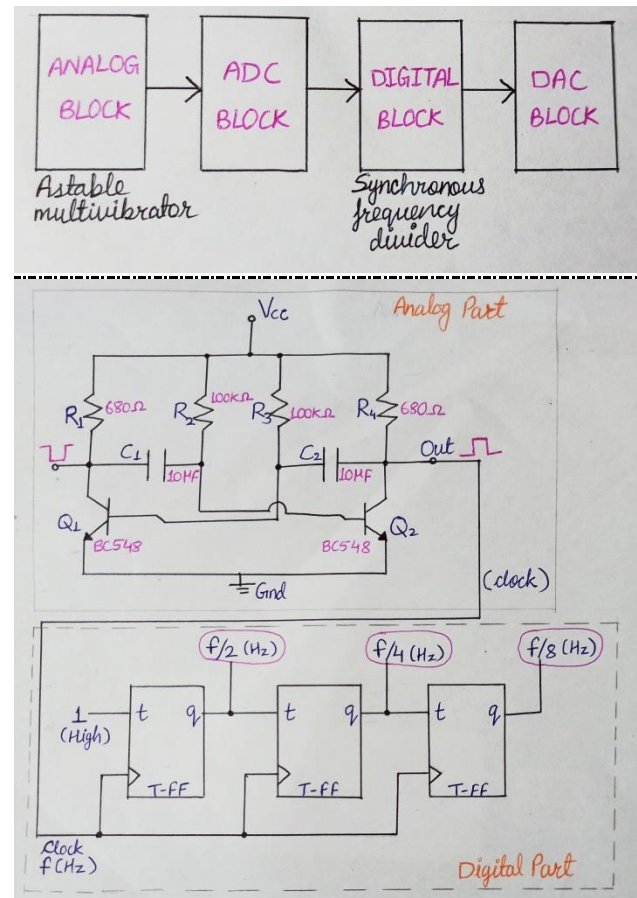 ANALOG
BLOCK
ADC
BLOCK
DIGITAL
BLOCK
DAC
BLOCK
Astable
multivibrator
Synchronous
frequency
divider
Vcc
Analog Part
R1
680Ω
R2
100kΩ
R3
100kΩ
R4
680Ω
C1
10µF
C2
10µF
Out
Q1
BC548
BC548
Q2
Gnd
(clock)
f/2 (Hz)
f/4 (Hz)
f/8 (Hz)
1
(High)
t
q
T-FF
t
q
T-FF
t
q
T-FF
Clock
f(Hz)
Digital Part